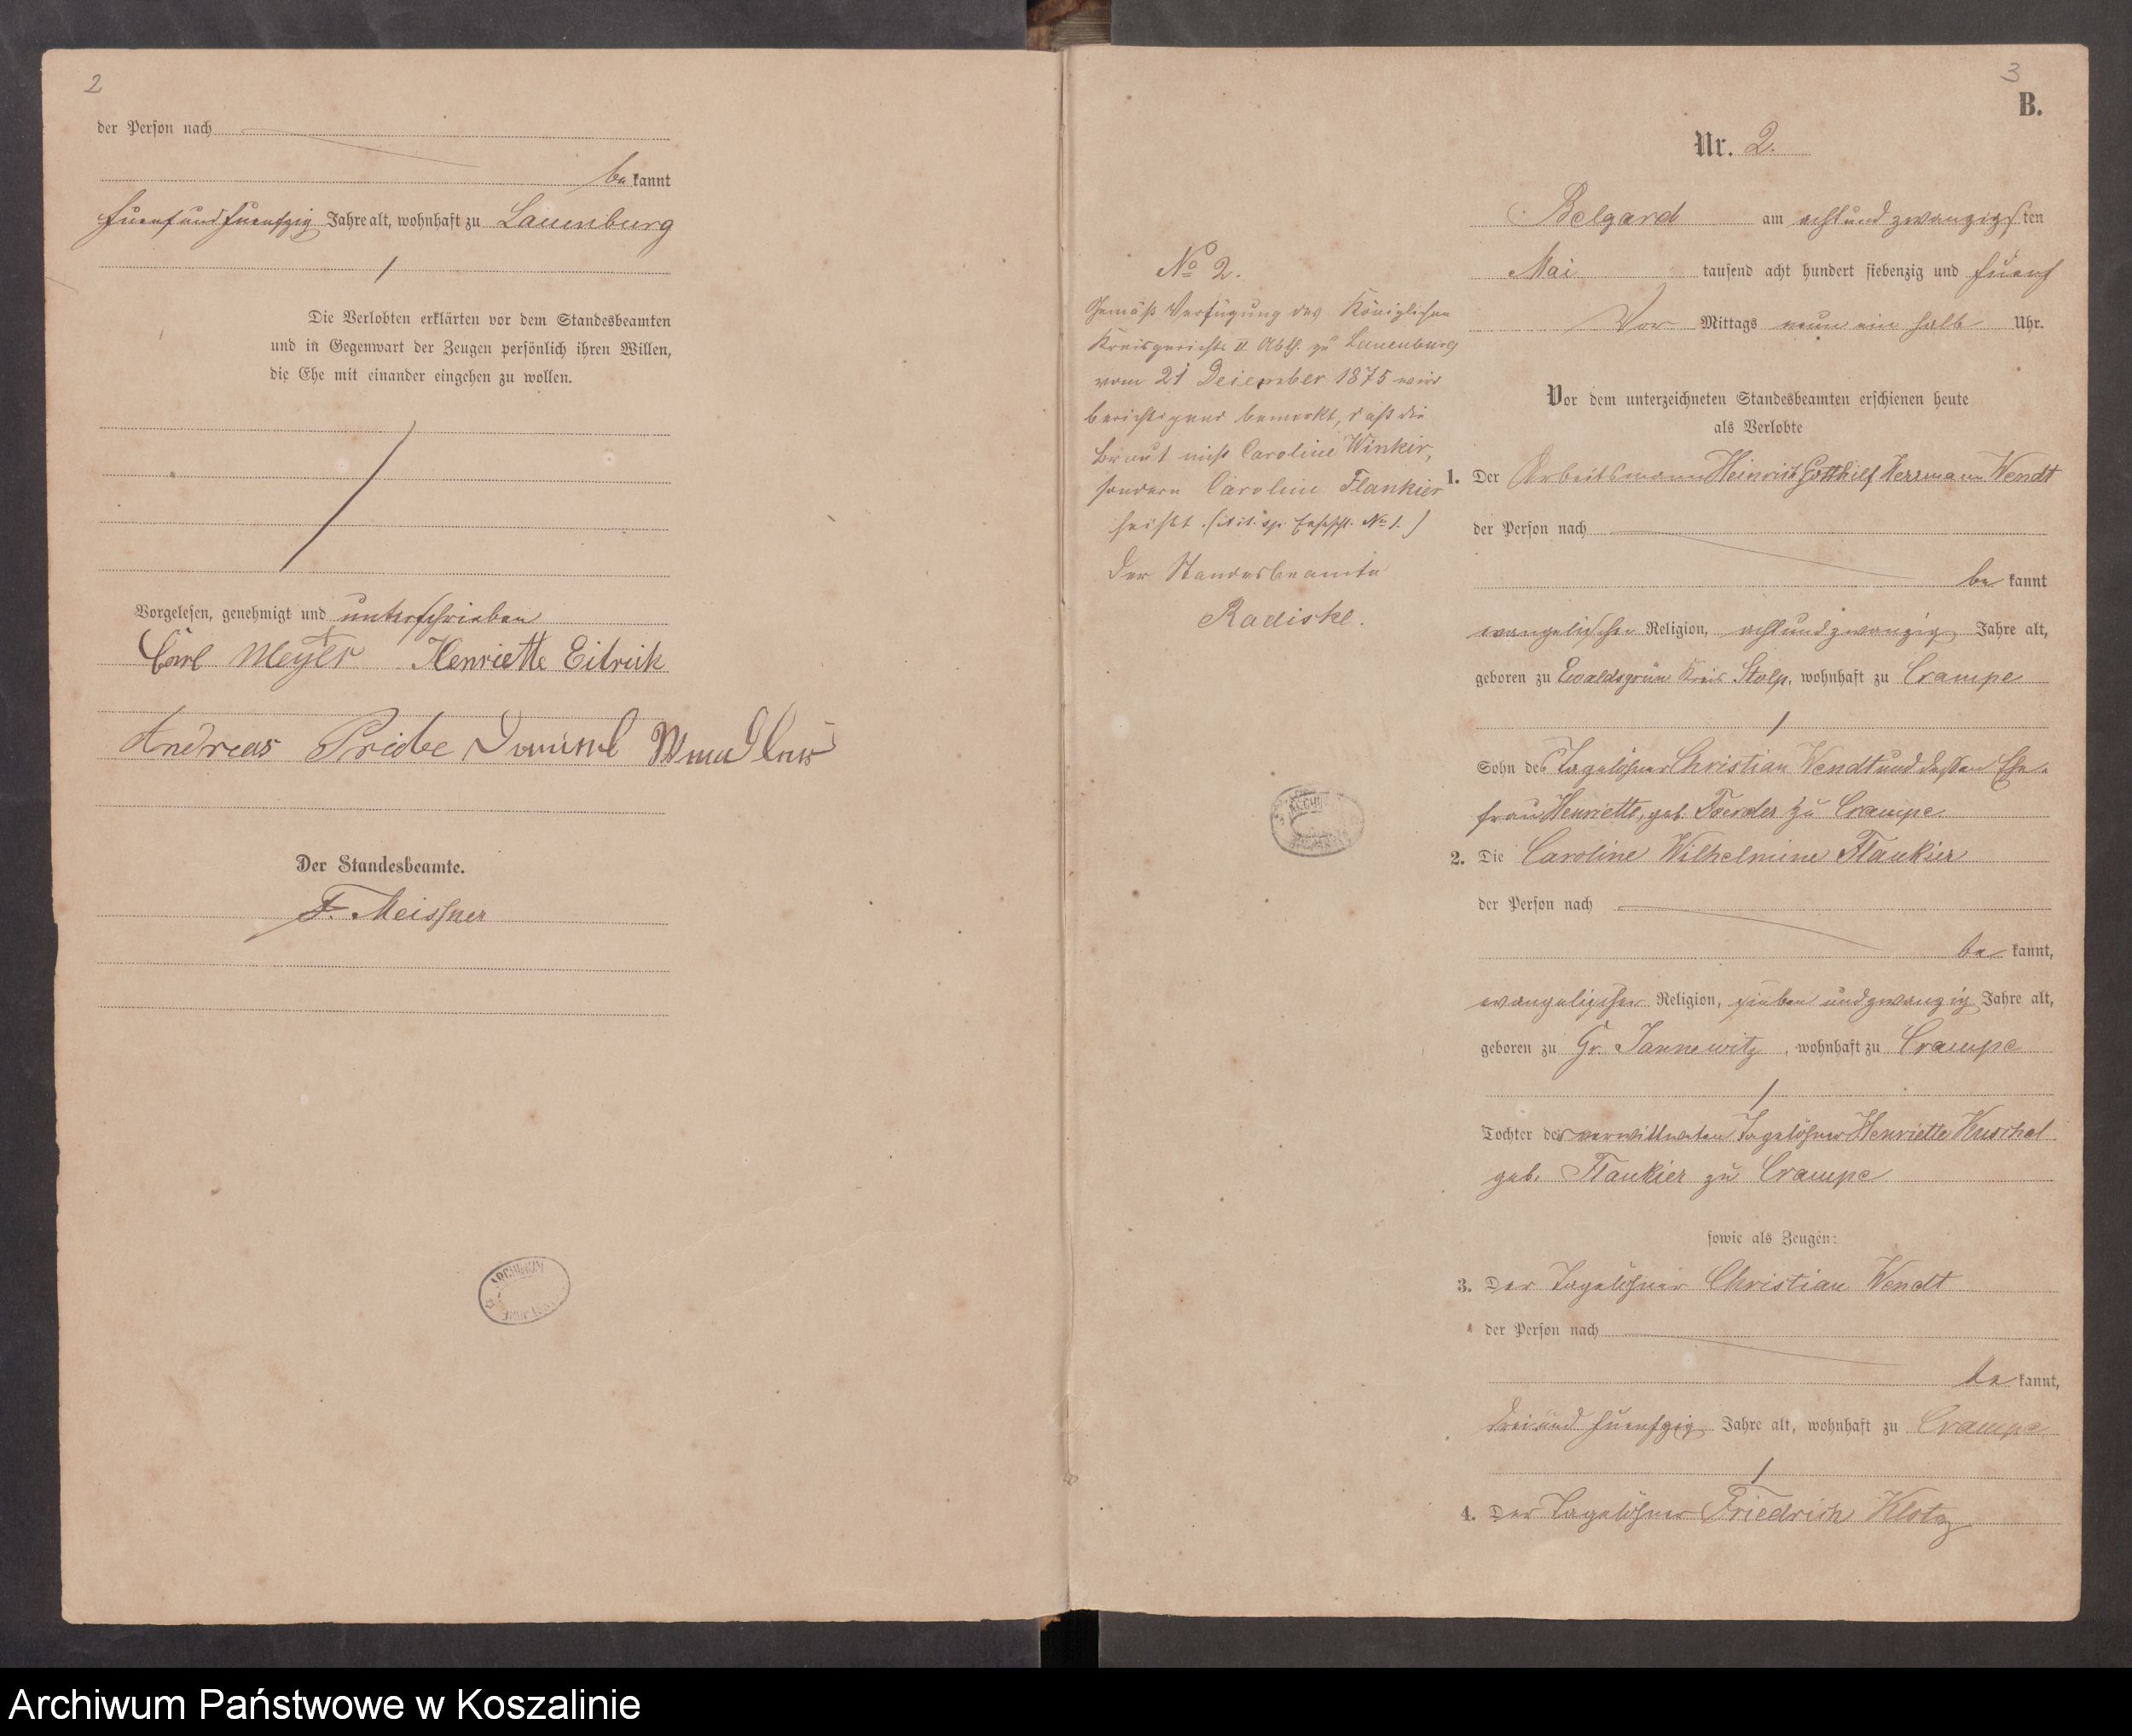 2
der Person nach
bekannt
fuenf und fuenfzig Jahre alt, wohnhaft zu Lauenburg
Die Verlobten erklärten vor dem Standesbeamten
und in Gegenwart der Zeugen persönlich ihren Willen,
die Ehe mit einander eingehen zu wollen.
Vorgelesen, genehmigt und unterschrieben
Carl Meyer Henriette
Andreas Pridbe
Der Standesbeamte.
F. Meissner
3
B.
Nr. 2.
Belgard am acht und zwanzigsten
Mai tausend acht hundert siebenzig und fuenf
Vor Mittags neun ein halb Uhr.
No 2.
Gemäß Verfügung des Königlichen
Kreisgerichts II Abth. zu Lauenburg
vom 21 Dezember 1875 wird
berichtigend bemerkt, daß die
Braut nicht Caroline Winkir,
sondern Caroline Flankier
heißt. No 1.)
Der Standesbeamte
Radiske.
Vor dem unterzeichneten Standesbeamten erschienen heute
als Verlobte
1. Der Arbeitsmann Heinrich Gotthilf Herrmann Wendt
der Person nach
bekannt
evangelischer Religion, acht und zwanzig Jahre alt,
geboren zu Ewaldsgrün Kreis Stolp, wohnhaft zu Crampe
Sohn des Tagelöhner Christian Wendt und dessen Ehe-
frau Henriette, geb. Foerder zu Crampe
2. Die Caroline Wilhelmine Flankier
der Person nach
bekannt,
evangelischer Religion, sieben und zwanzig Jahre alt,
geboren zu Gr. Jannewitz, wohnhaft zu Crampe
Tochter der verwittweten Tagelöhner Henriette Kuschel
geb. Flankier zu Crampe
sowie als Zeugen:
3. Der Tagelöhner Christian Wendt
der Person nach
bekannt,
drei und fuenfzig Jahre alt, wohnhaft zu Crampe
4. Der Tagelöhner Friedrich Klotz
ARCHIWUM
Archiwum Państwowe w Koszalinie